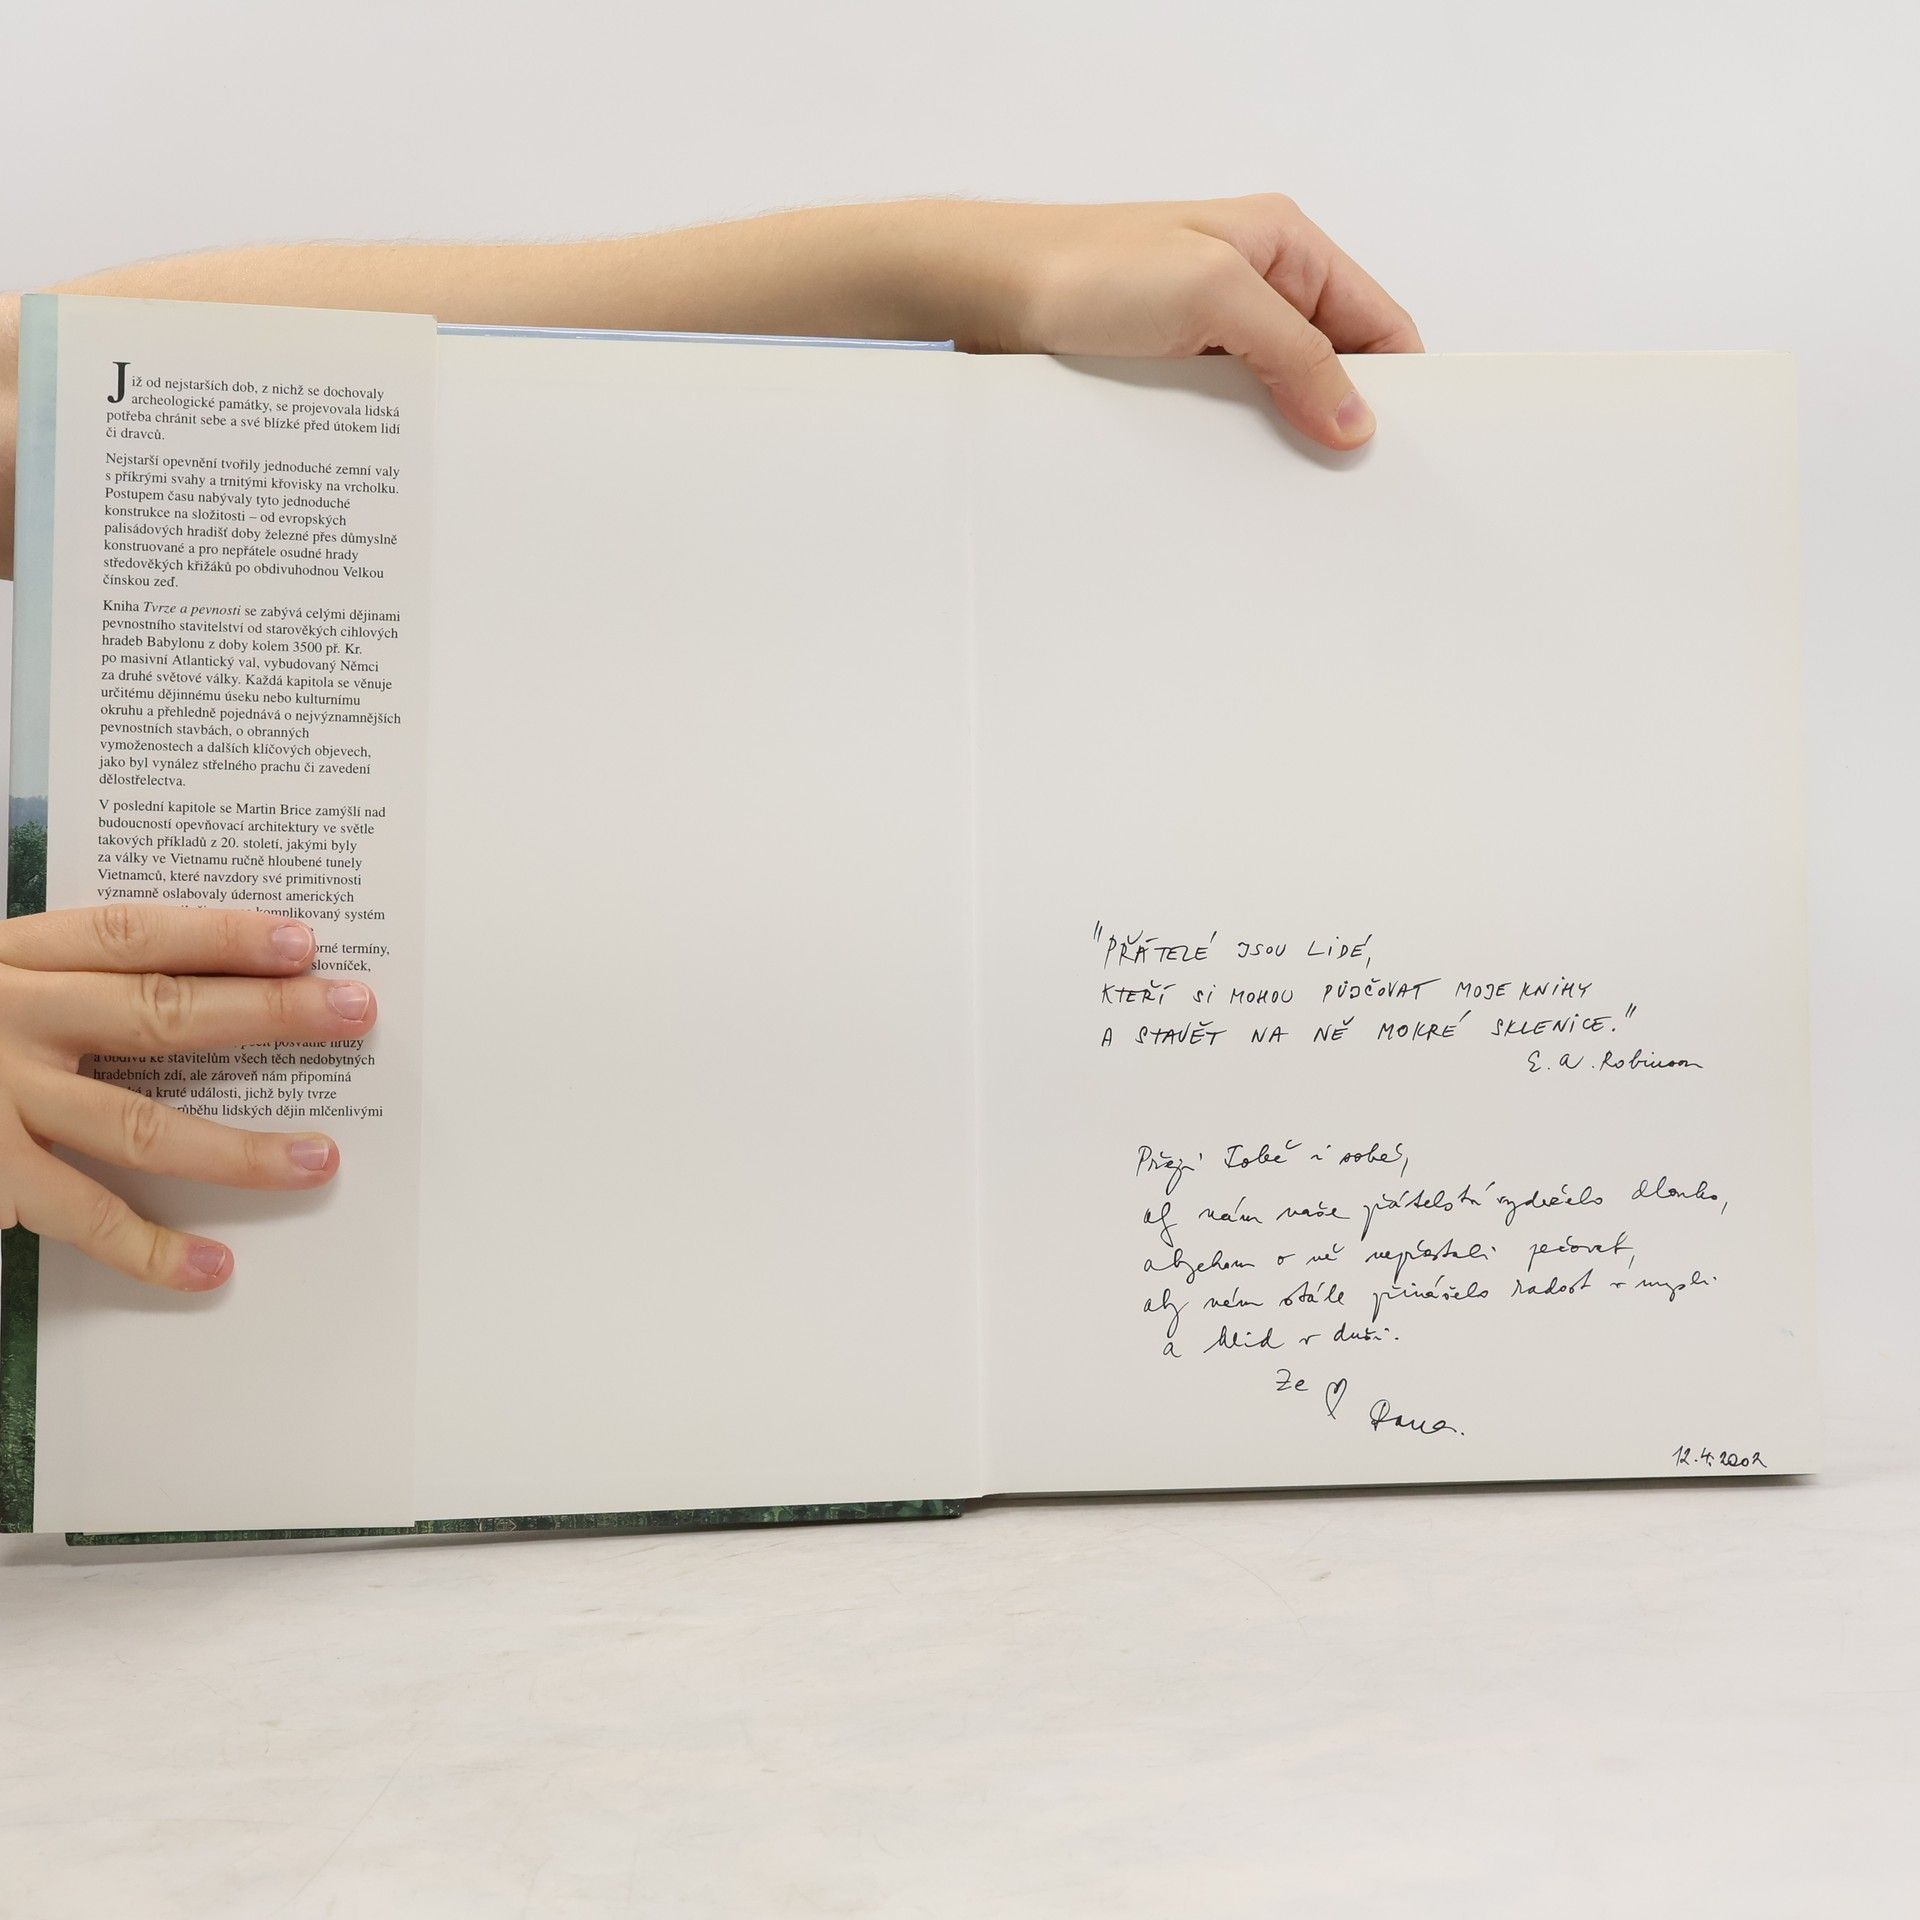 Již od nejstarších dob, z nichž se dochovaly
archeologické památky, se projevovala lidská
potřeba chránit sebe a své blízké před útokem lidí
či dravců.
Nejstarší opevnění tvořily jednoduché zemní valy
s příkrými svahy a trnitými křovisky na vrcholku.
Postupem času nabývaly tyto jednoduché
konstrukce na složitosti – od evropských
palisádových hradišť doby železné přes důmyslně
konstruované a pro nepřátele osudné hrady
středověkých křižáků po obdivuhodnou Velkou
čínskou zeď.
Kniha Tvrze a pevnosti se zabývá celými dějinami
pevnostního stavitelství od starověkých cihlových
hradeb Babylonu z doby kolem 3500 př. Kr.
po masivní Atlantický val, vybudovaný Němci
za druhé světové války. Každá kapitola se věnuje
určitému dějinnému úseku nebo kulturnímu
okruhu a přehledně pojednává o nejvýznamnějších
pevnostních stavbách, o obranných
vymoženostech a dalších klíčových objevech,
jako byl vynález střelného prachu či zavedení
dělostřelectva.
V poslední kapitole se Martin Brice zamýšlí nad
budoucností opevňovací architektury ve světle
takových příkladů z 20. století, jakými byly
za války ve Vietnamu ručně hloubené tunely
Vietnamců, které navzdory své primitivnosti
významně oslabovaly údernost amerických
komplikovaný systém
termíny,
slovníček,
posvátné hrůzy
a obdivu ke stavitelům všech těch nedobytných
hradebních zdí, ale zároveň nám připomíná
a kruté události, jichž byly tvrze
lidských dějin mlčenlivými
"PŘÁTELÉ JSOU LIDÉ,
KTEŘÍ SI MOHOU PŮJČOVAT MOJE KNIHY
A STAVĚT NA NĚ MOKRÉ SKLENICE."
E. A. Robinson
Přeji Tobě i sobě,
ať nám naše přátelství vydrželo dlouho,
abychom o ně nepřestali pečovat,
aby nám stále přinášelo radost v mysli
a klid v duši.
Ze ♡
Dana.
12.4.2002